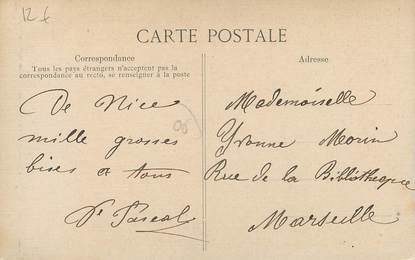 12 €
CARTE POSTALE
Correspondance
Tous les pays étrangers n'acceptent pas la
correspondance au recto, se renseigner à la poste
De Nice
mille grosses
bises a tous
Pascal
06
Adresse
Mademoiselle
Yvonne Morin
Rue de la Bibliotheque
Marseille